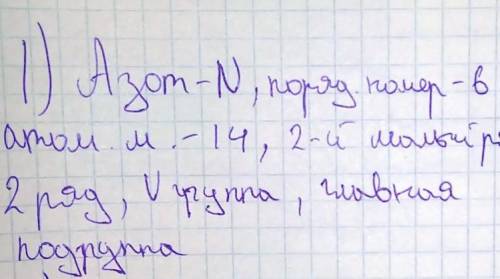 1) Азот-N, поряд. номер-6
атом. м. -14, 2-й малый
2 ряд, V группа, главная
подгруппа